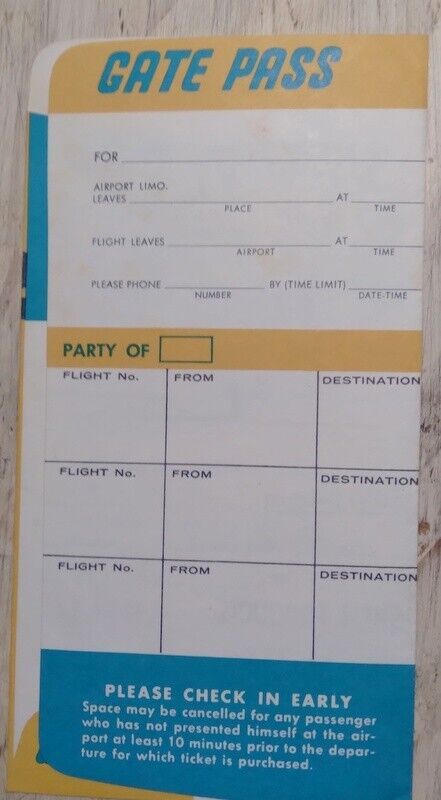 GATE PASS
FOR
AIRPORT LIMO.
LEAVES AT
PLACE TIME
FLIGHT LEAVES AT
AIRPORT TIME
PLEASE PHONE BY (TIME LIMIT)
NUMBER DATE-TIME
PARTY OF
FLIGHT No. FROM DESTINATION
FLIGHT No. FROM DESTINATION
FLIGHT No. FROM DESTINATION
PLEASE CHECK IN EARLY
Space may be cancelled for any passenger
who has not presented himself at the air-
port at least 10 minutes prior to the depar-
ture for which ticket is purchased.